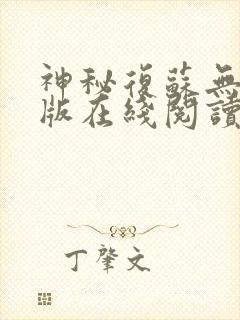 神秘復蘇無
版在綫閱讀
丁肇文